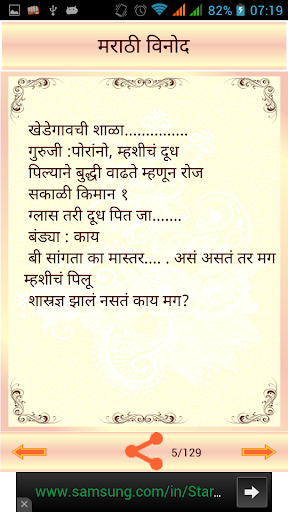 82% 07:19
मराठी विनोद
खेडेगावची शाळा...............
गुरुजी :पोरांनो, म्हशीचं दूध
पिल्याने बुद्धी वाढते म्हणून रोज
सकाळी किमान १
ग्लास तरी दूध पित जा.......
बंड्या : काय
बी सांगता का मास्तर.... . असं असतं तर मग
म्हशीचं पिलू
शास्रज्ञ झालं नसतं काय मग?
5/129
www.samsung.com/in/Star...